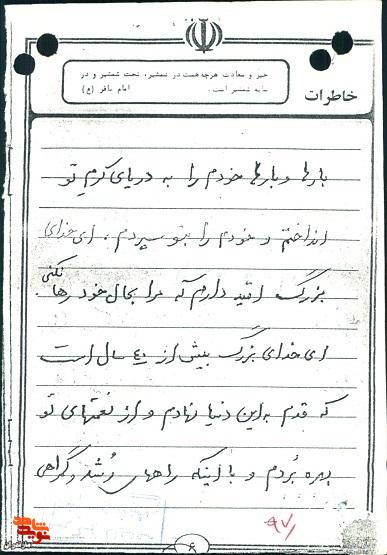 خاطرات
خیر و سعادت هرچه هست در شمشیر، تحت شمشیر و در
سایه شمشیر است.
امام باقر (ع)
بارها و بارها خودم را به دریای کرم تو
انداختم و خودم را بتو سپردم، ای خدای
بزرگ امید دارم که مرا بحال خود رها نکنی.
ای خدای بزرگ بیش از ٤٠ سال است
که قدم به این دنیا نهادم و از نعمتهای تو
بهره بُردم و با اینکه راههای رُشد و گمراهی
نوید شاهد